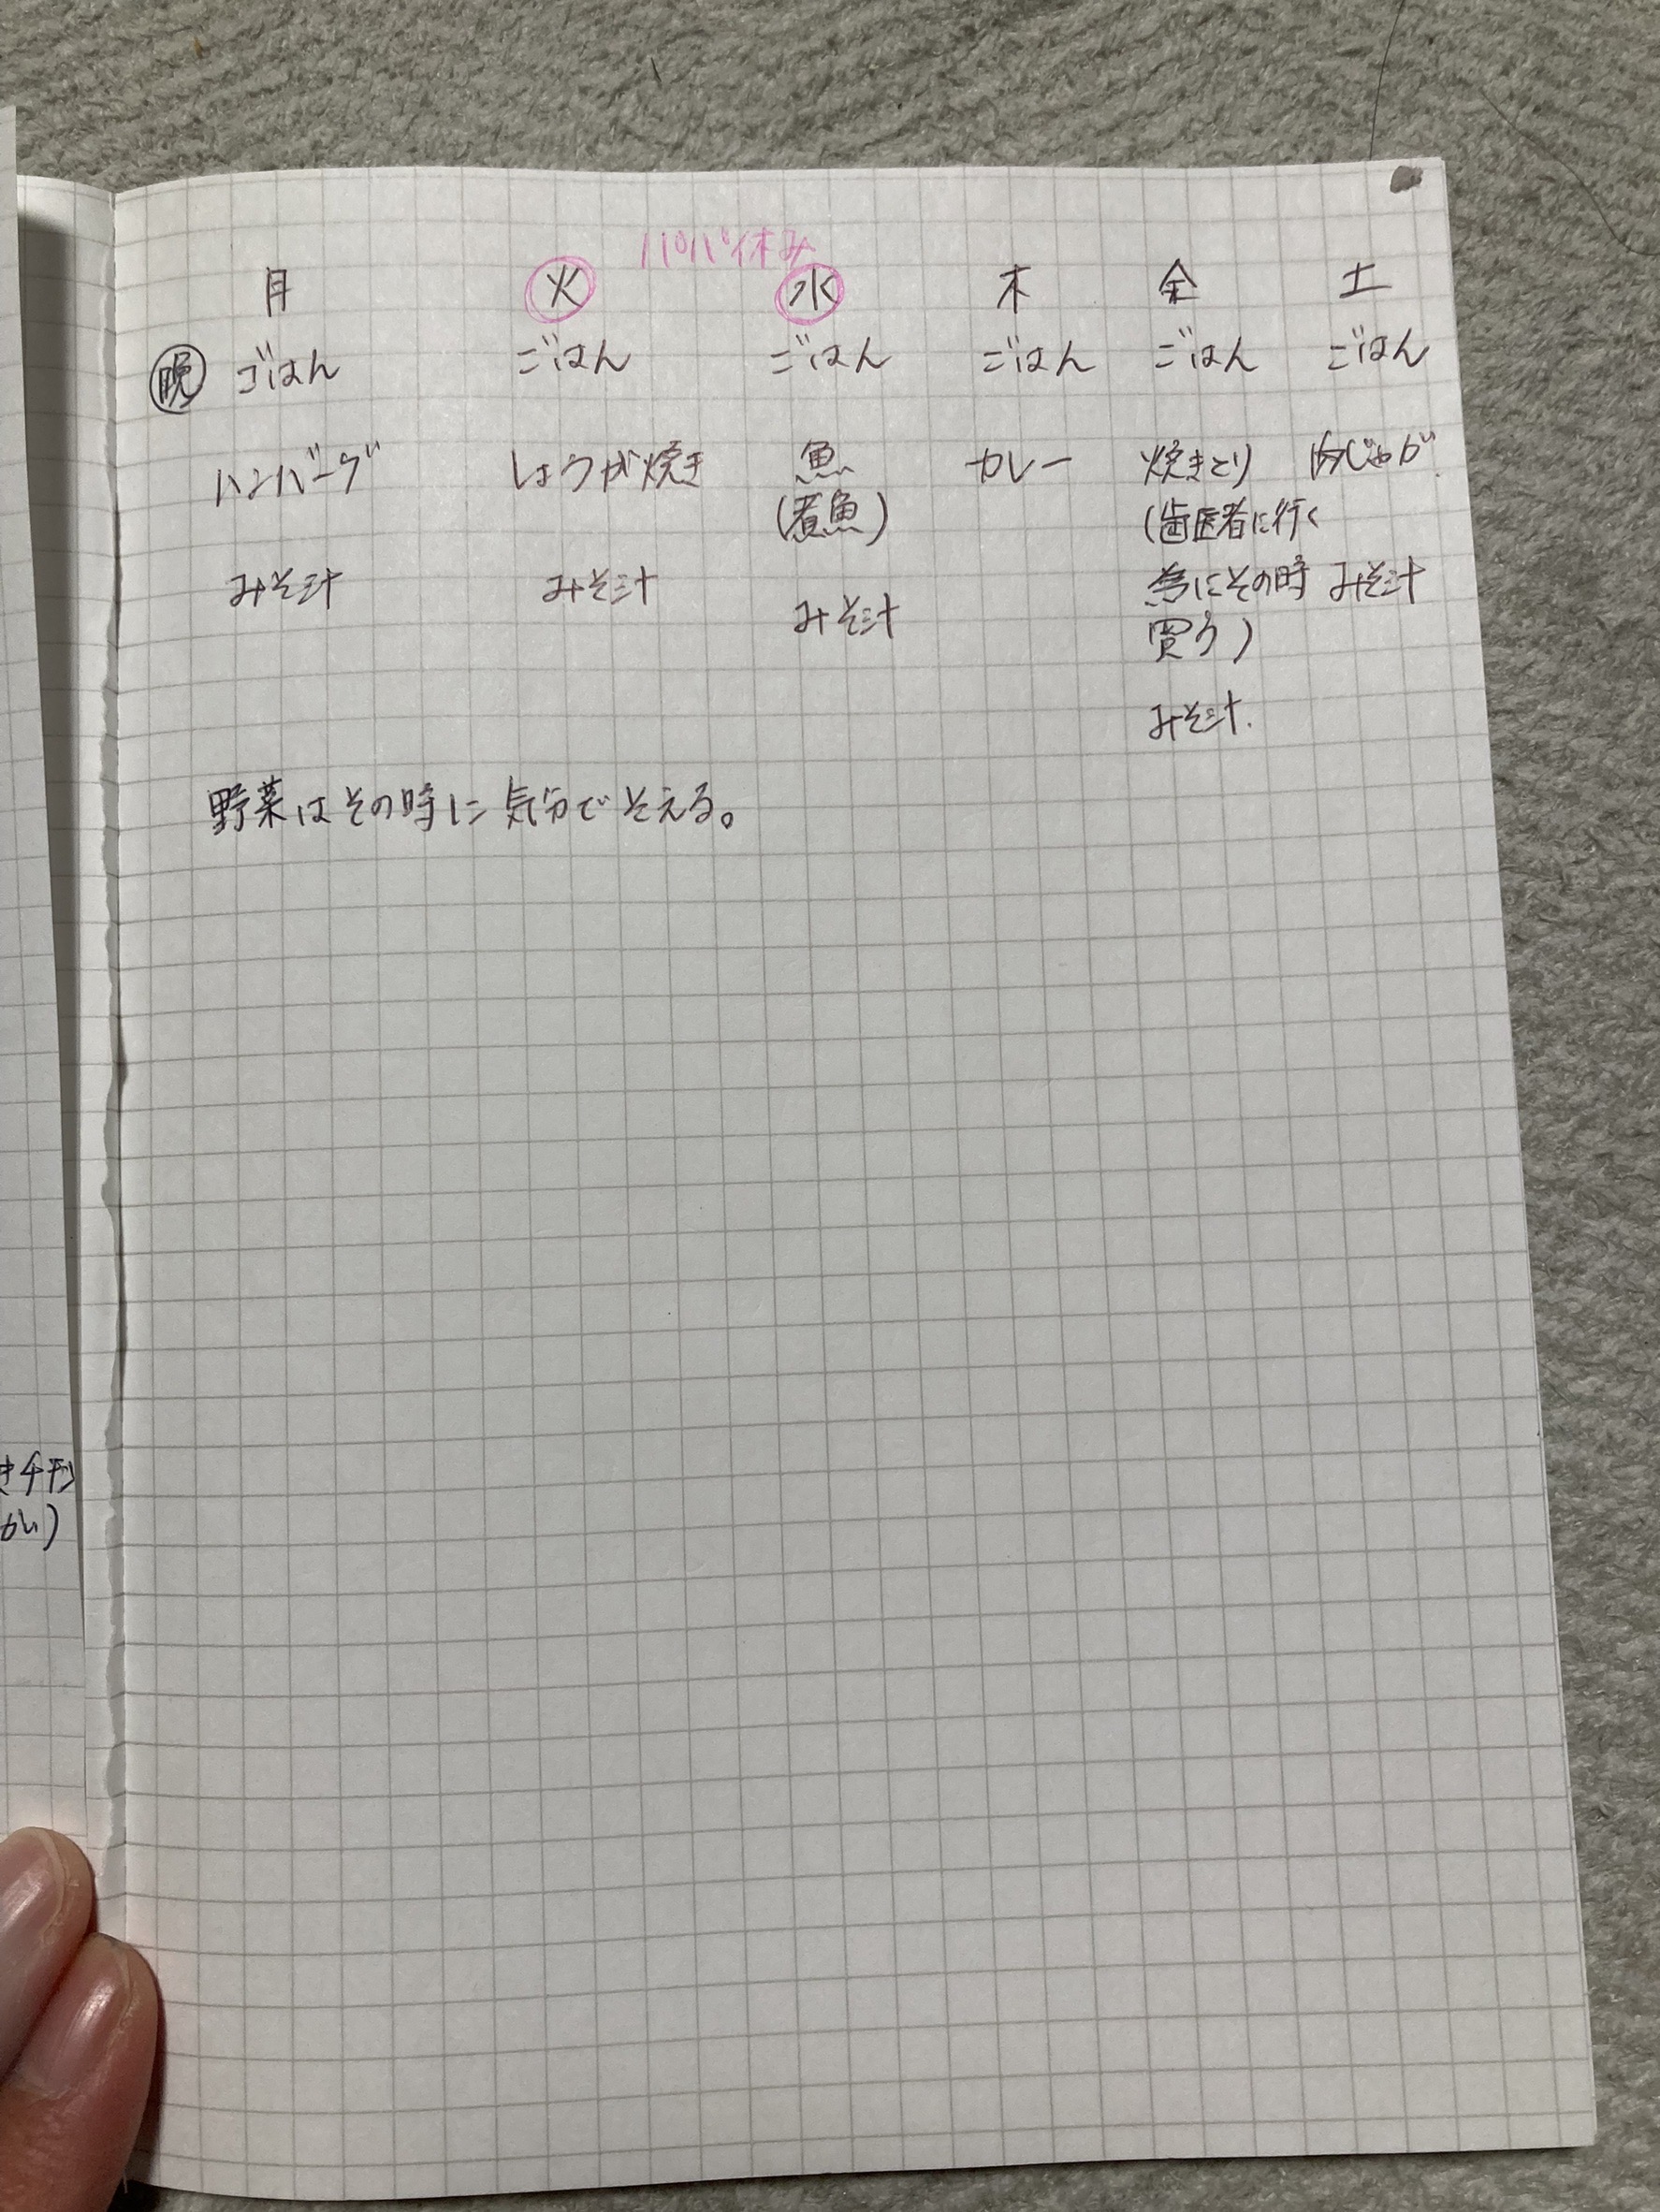 パパ休み
月 火 水 木 金 土
晩 ごはん ごはん ごはん ごはん ごはん ごはん
ハンバーグ しょうが焼き 魚 カレー 焼きとり 肉じゃが
(煮魚) (歯医者に行く
みそ汁 みそ汁 為にその時 みそ汁
みそ汁 買う)
みそ汁.
野菜はその時に気分でそえる。